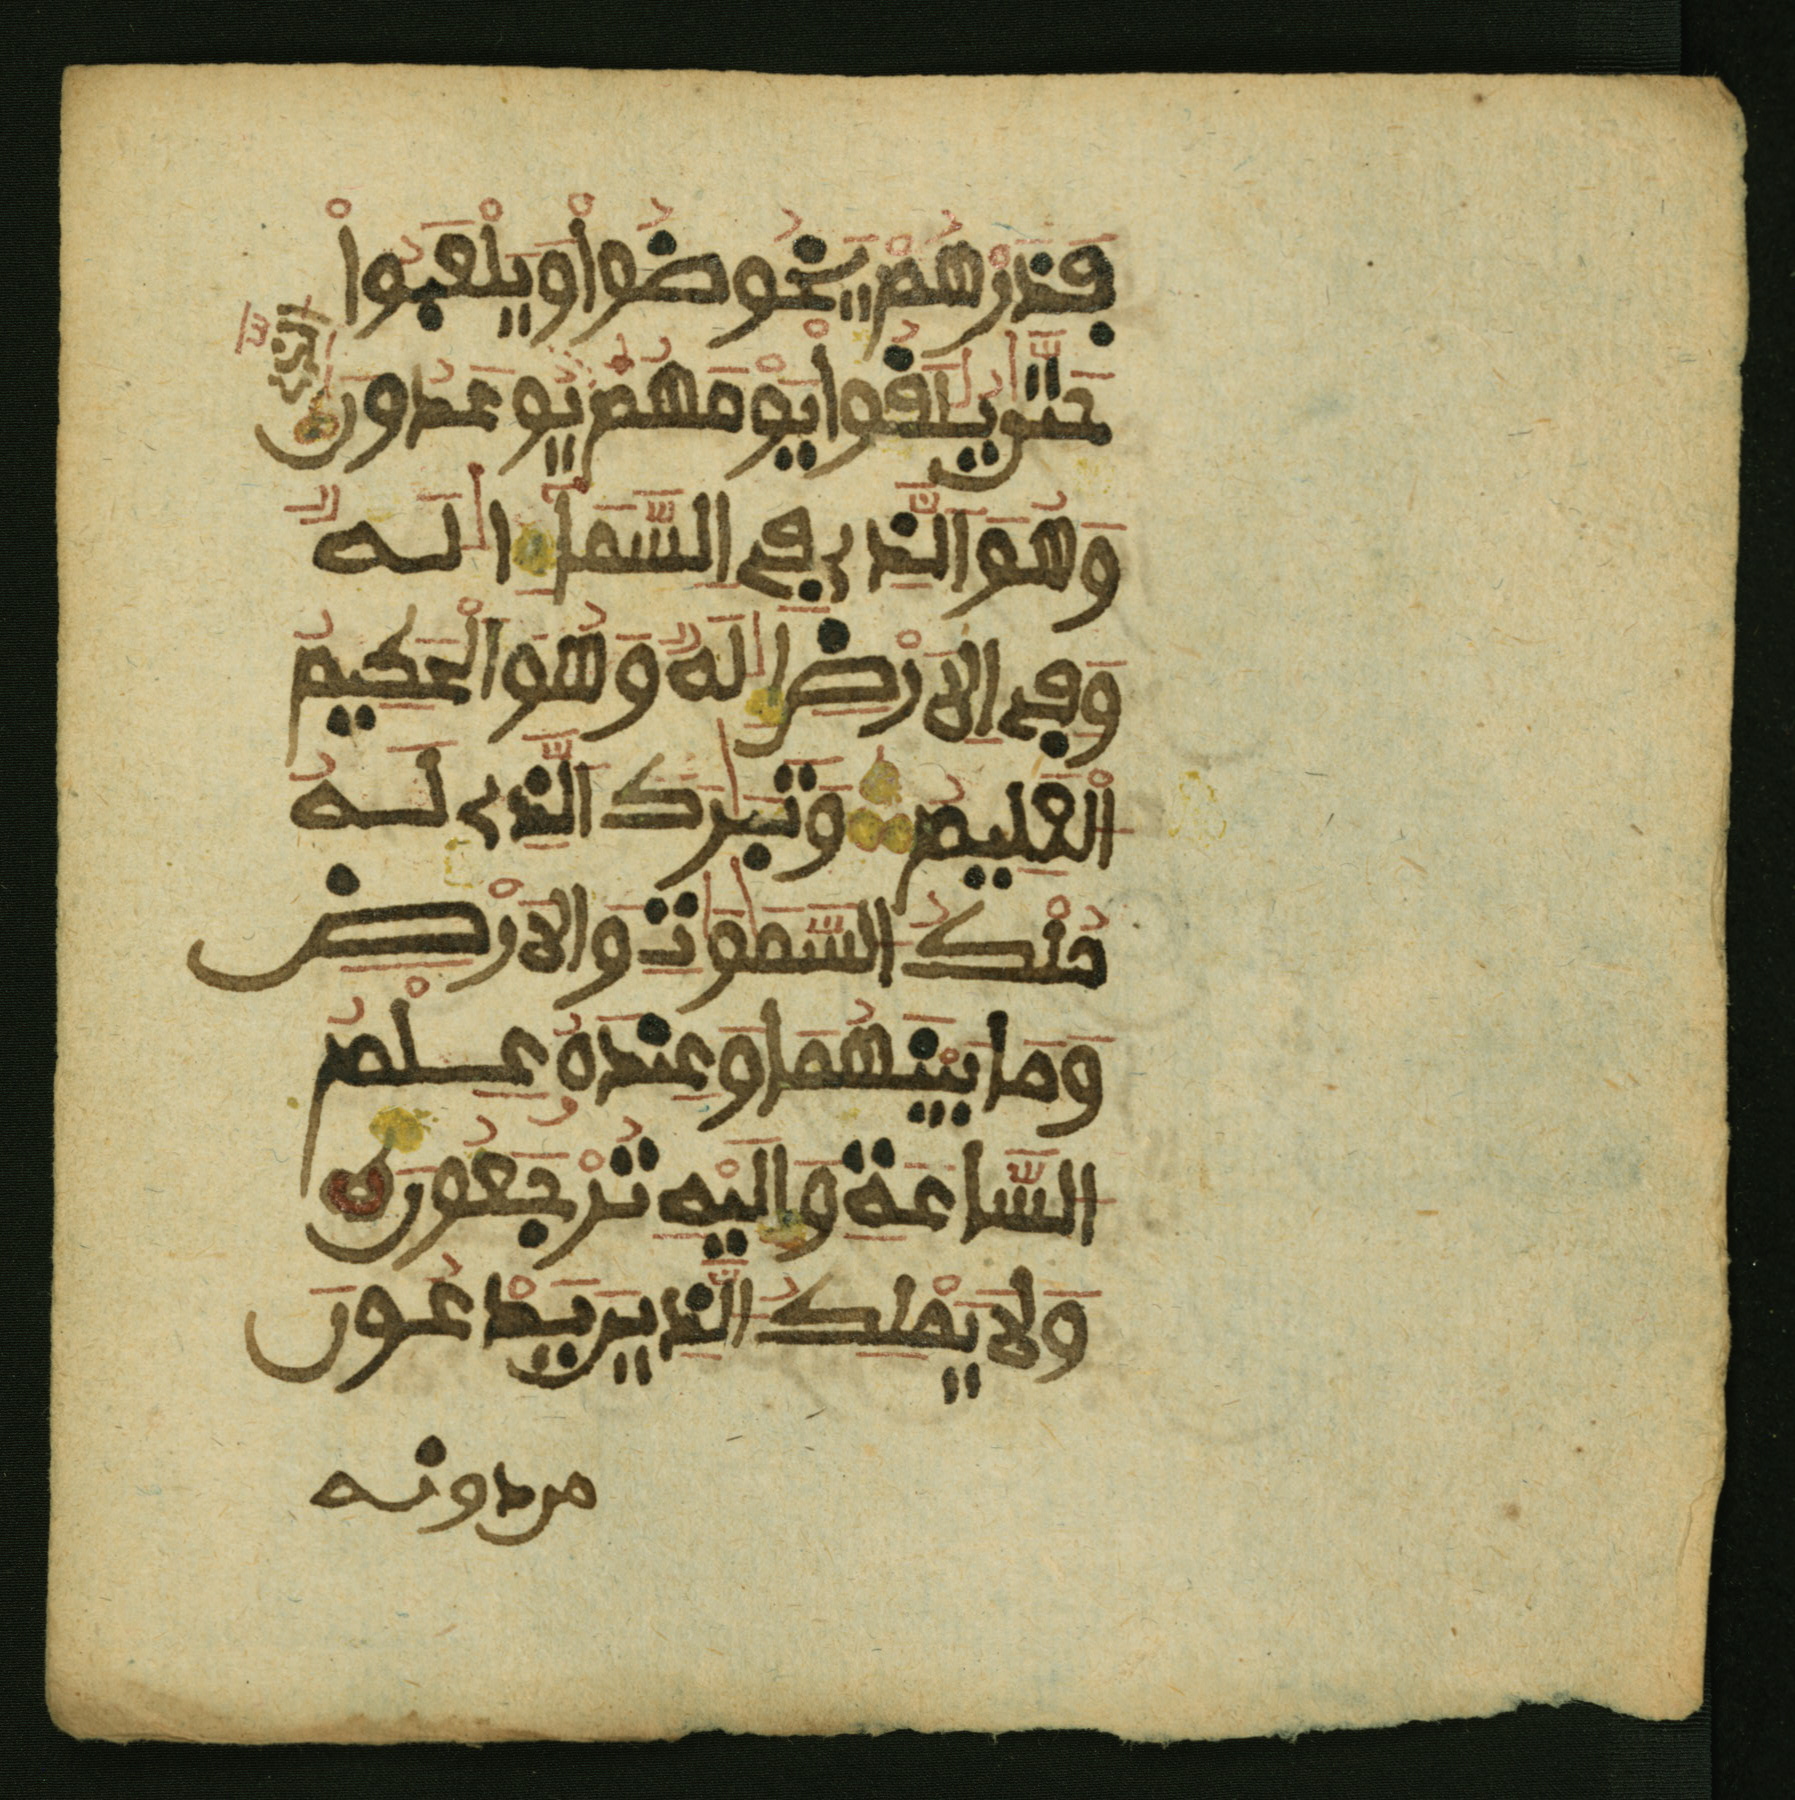 فَذَرْهُمْ يَخُوضُواْ وَيَلْعَبُواْ
حَتَّىٰ يُلَٰقُواْ يَوْمَهُمُ الَّذِے يُوعَدُونَ
وَهُوَ الَّذِے فِے السَّمَاءِ الَٰهٌ
وَفِے الَارْضِ إِلَٰهٌ وَهُوَ الْحَكِيمُ
اَلْعَلِيمُ وَتَبَٰرَكَ الَّذِے لَهُ
مُلْكُ السَّمَٰوَٰتِ وَالَارْضِ
وَمَا بَيْنَهُمَا وَعِندَهُ عِلْمُ
السَّاعَةِ وَإِلَيْهِ تُرْجَعُونَ
وَلَا يَمْلِكُ الَّذِينَ يَدْعُونَ
من دونه